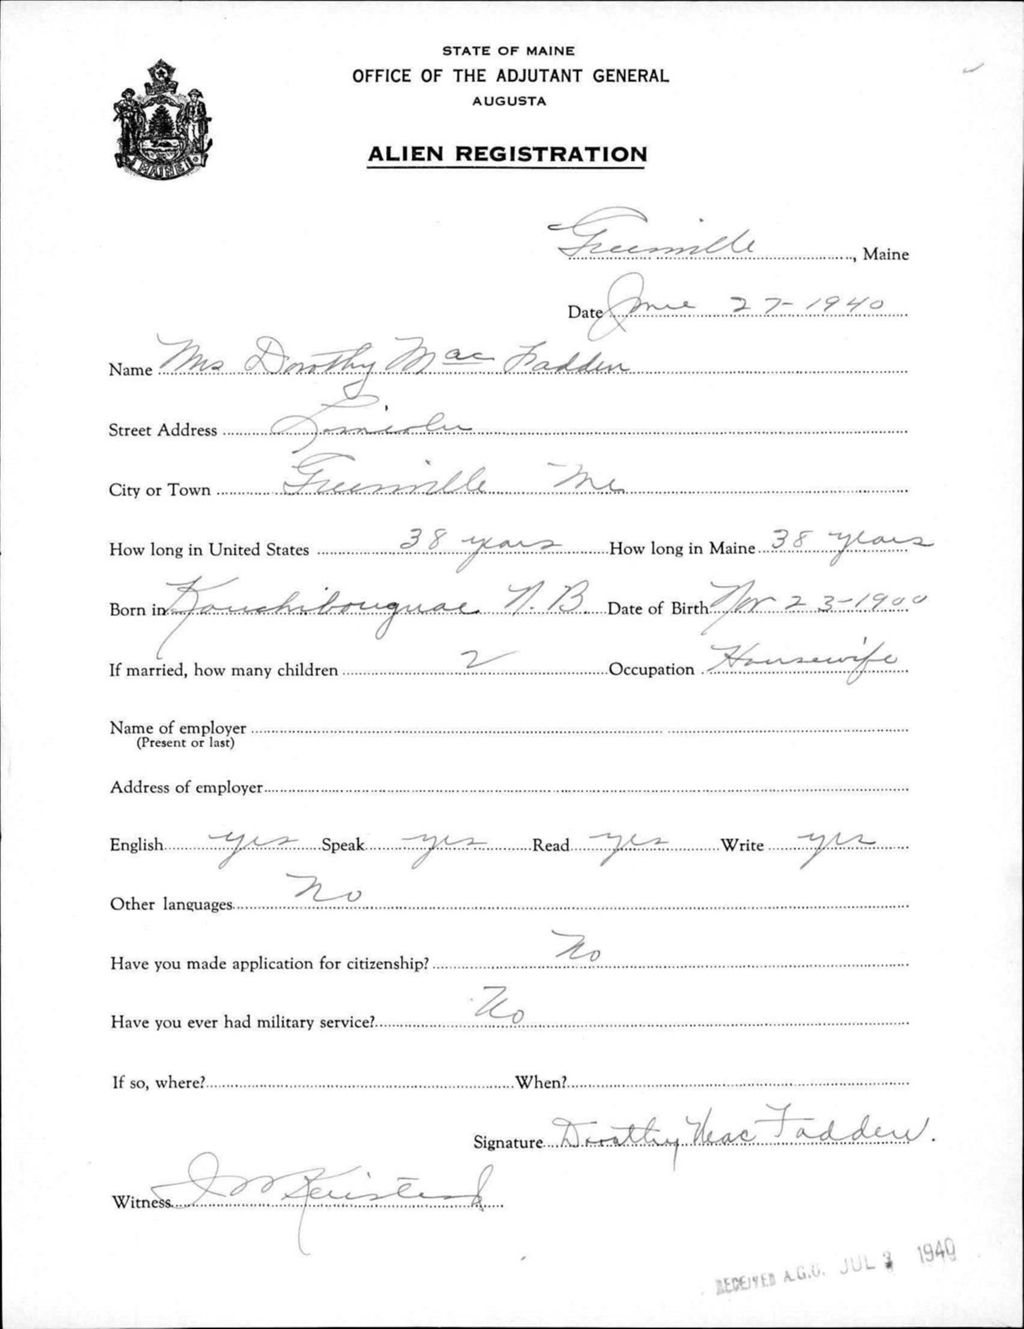 STATE OF MAINE
OFFICE OF THE ADJUTANT GENERAL
AUGUSTA
ALIEN REGISTRATION
MAINE
Greenville, Maine
Date June 27-1940
Name Mrs Dorothy Mac Fadden
Street Address Lincoln
City or Town Greenville Me
How long in United States 38 years How long in Maine 38 years
Born in Kouchibouguac N.B Date of Birth Nov 23-1900
If married, how many children 2 Occupation Housewife
Name of employer
(Present or last)
Address of employer
English yes Speak yes Read yes Write yes
Other languages No
Have you made application for citizenship? No
Have you ever had military service? No
If so, where? When?
Signature Dorothy Mac Fadden.
Witness
RECEIVED A.G.O. JUL 1940